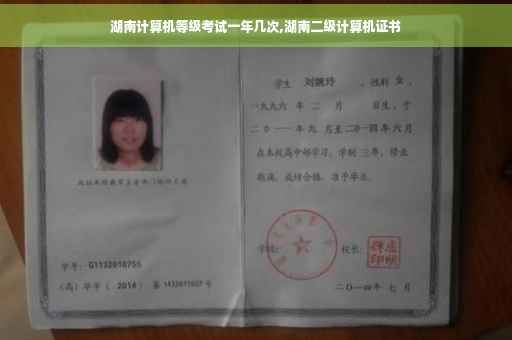 湖南计算机等级考试一年几次,湖南二级计算机证书
学生 刘婉玲 ，性别 女 ，
一九九六 年 二 月 日生，于
二〇一一 年 九 月至 二〇一四 年 六 月
在本校高中部学习，学制 三 年，修业
期满，成绩合格，准予毕业。
学号: G1132010755
(高) 毕字 ( 2014 ) 第 号
学校:
校长:
二〇一四年 七 月